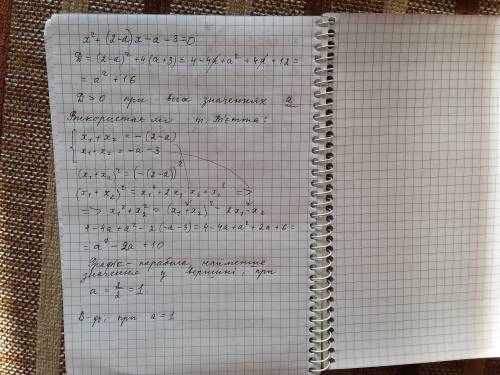 x² + (2-a)x - a - 3 = 0
D = (2-a)² + 4(a+3) = 4 - 4a + a² + 4a + 12 =
= a² + 16
D > 0 при всіх значеннях a
Використаємо т. Вієтта:
{ x₁ + x₂ = -(2-a)
x₁ + x₂ = -a - 3
(x₁ + x₂)² = (-(2-a))²
(x₁ + x₂)² = x₁² + 2x₁ x₂ + x₂² =>
=> x₁² + x₂² = (x₁ + x₂)² - 2x₁·x₂
4 - 4a + a² - 2(-a-3) = 4 - 4a + a² + 2a + 6 =
= a² - 2a + 10
Графік - парабола, найменше
значення у вершині, при
a = 2/2 = 1
В-дь, при a = 1